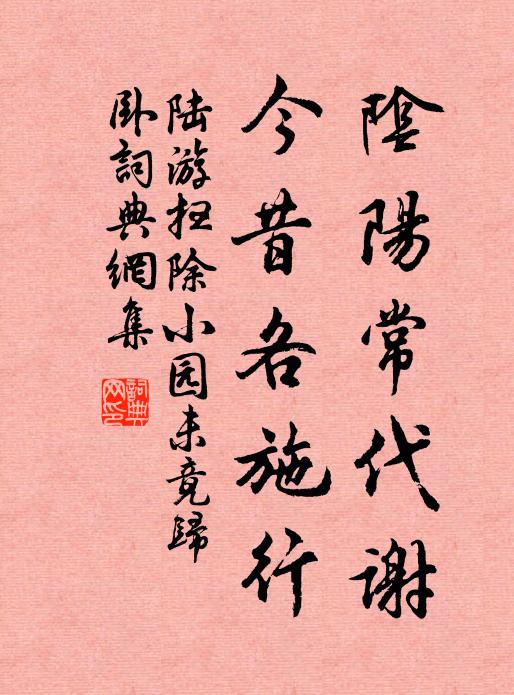 陰陽常代謝
今昔各施行
陆游扫除小园未竟歸
卧詞典網集
詞典
网印